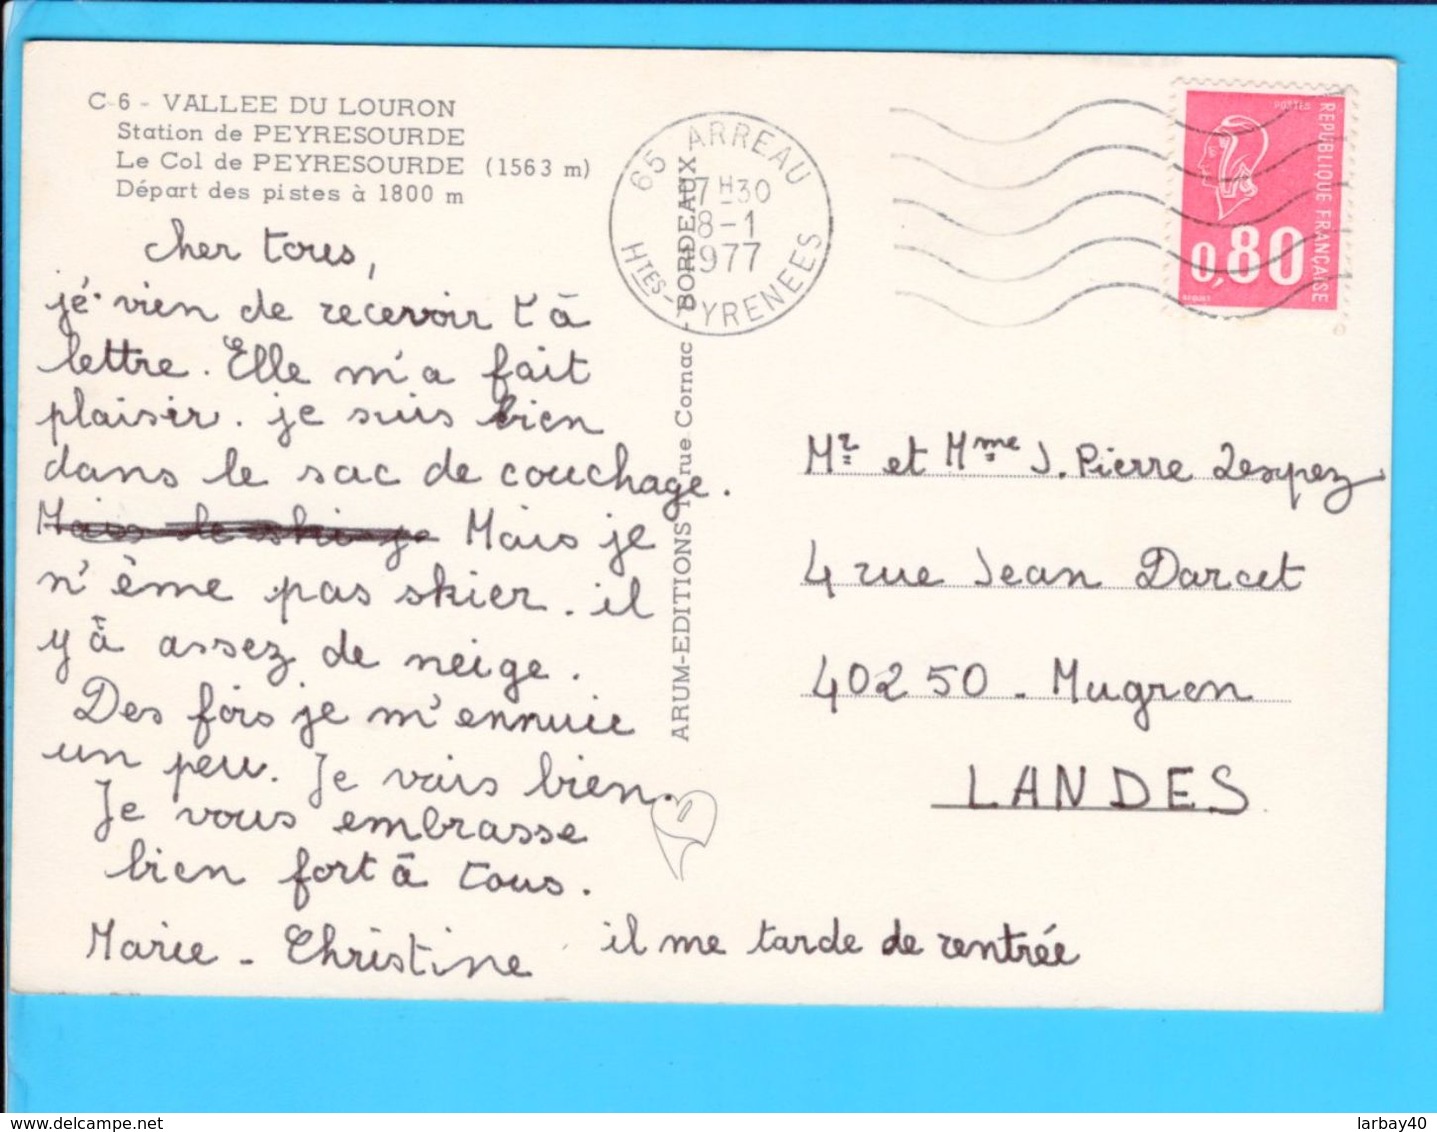 C-6 - VALLEE DU LOURON
Station de PEYRESOURDE
Le Col de PEYRESOURDE (1563 m)
Départ des pistes à 1800 m
cher tous,
jé vien de recevoir t à
lettre. Elle m'a fait
plaisir. je suis bien
dans le sac de couchage.
Mais le ski je Mais je
n'ême pas skier. il
y à assez de neige.
Des fois je m'ennuie
un peu. Je vais bien.
Je vous embrasse
bien fort à tous.
Marie - Christine
il me tarde de rentrée
ARUM-EDITIONS rue Cornac - BORDEAUX
65 ARREAU
17H30
8-1
1977
HTES-PYRENEES
POSTES
REPUBLIQUE FRANÇAISE
0,80
BEQUET
Mr et Mme J. Pierre Lespez
4 rue Jean Darcet
40250 - Mugron
LANDES
www.delcampe.net
larbay40